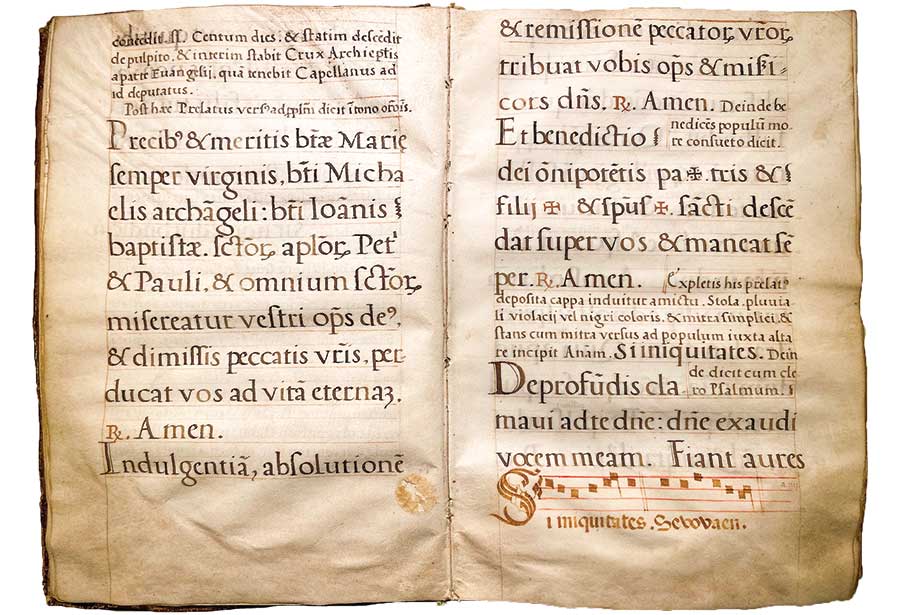 concedit. ss. Centum dies. & statim descēdit
de pulpito. & interim stabit Crux Archiep̄tis
a parte Euangelij. quā tenebit Capellanus ad
id deputatus.
Post hæc Prelatus versꝰ ad pp̄lm̄ dicit ī tono
Precibꝰ & meritis btǣ Marię
semper virginis, bt̄i Micha
elis archāgeli: bt̄i Ioānis
baptistæ. sctōꝝ aplōꝝ Pet'
& Pauli, & omnium sctōꝝ
misereatur vestri op̄s deꝰ,
& dimissis peccatis vr̄is, per-
ducat vos ad vitā eternaꝫ.
℟. Amen.
Indulgentiā, absolutionē
& remissionē peccatoꝝ vroꝝ
tribuat vobis op̄s & misēi-
cors dn̄s. ℟. Amen. Deinde be
nedicēs populū mo-
re consueto dicit.
Et benedictio
dei ōnipotētis pa ✠ tris &
filij ✠ & sp̄us ✠. sācti descē
dat super vos & maneat sē
per. ℟. Amen. Expletis his prelatꝰ
deposita cappa induitur amictu. Stola. pluuia-
li violacij vel nigri coloris. & mitra simplici, &
stans cum mitra versus ad populum iuxta alta
re incipit Anam̄. Si iniquitates. Dein
de dicit cum cle
ro Psalmum.
De profūdis cla-
maui ad te dn̄e: dn̄e exaudi
vocem meam. Fiant aures
Si iniquitates. Sevovaen.